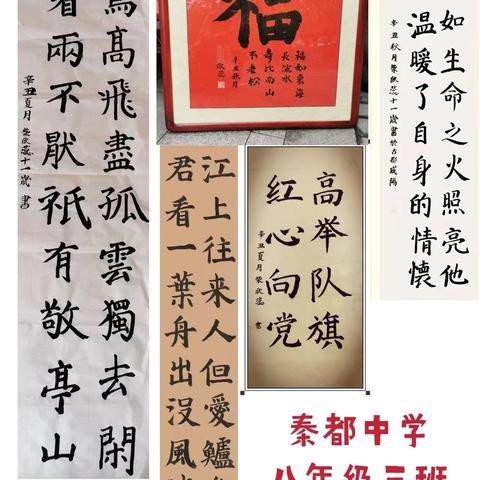 鳥髙飛盡孤雲獨去閑
看兩不厭祇有敬亭山
辛丑夏月 柴欣蕊十一歲 書
福
福如東海
長流水
壽比南山
不老松
辛丑秋月
欣蕊
如生命之火照亮他
温暖了自身的情懷
辛丑秋月柴欣蕊十一歲書於古都咸陽
江上往来人但愛鱸
君看一葉舟出没風
高举队旗
红心向党
辛丑夏月柴欣蕊 書
秦都中学
八年级三班